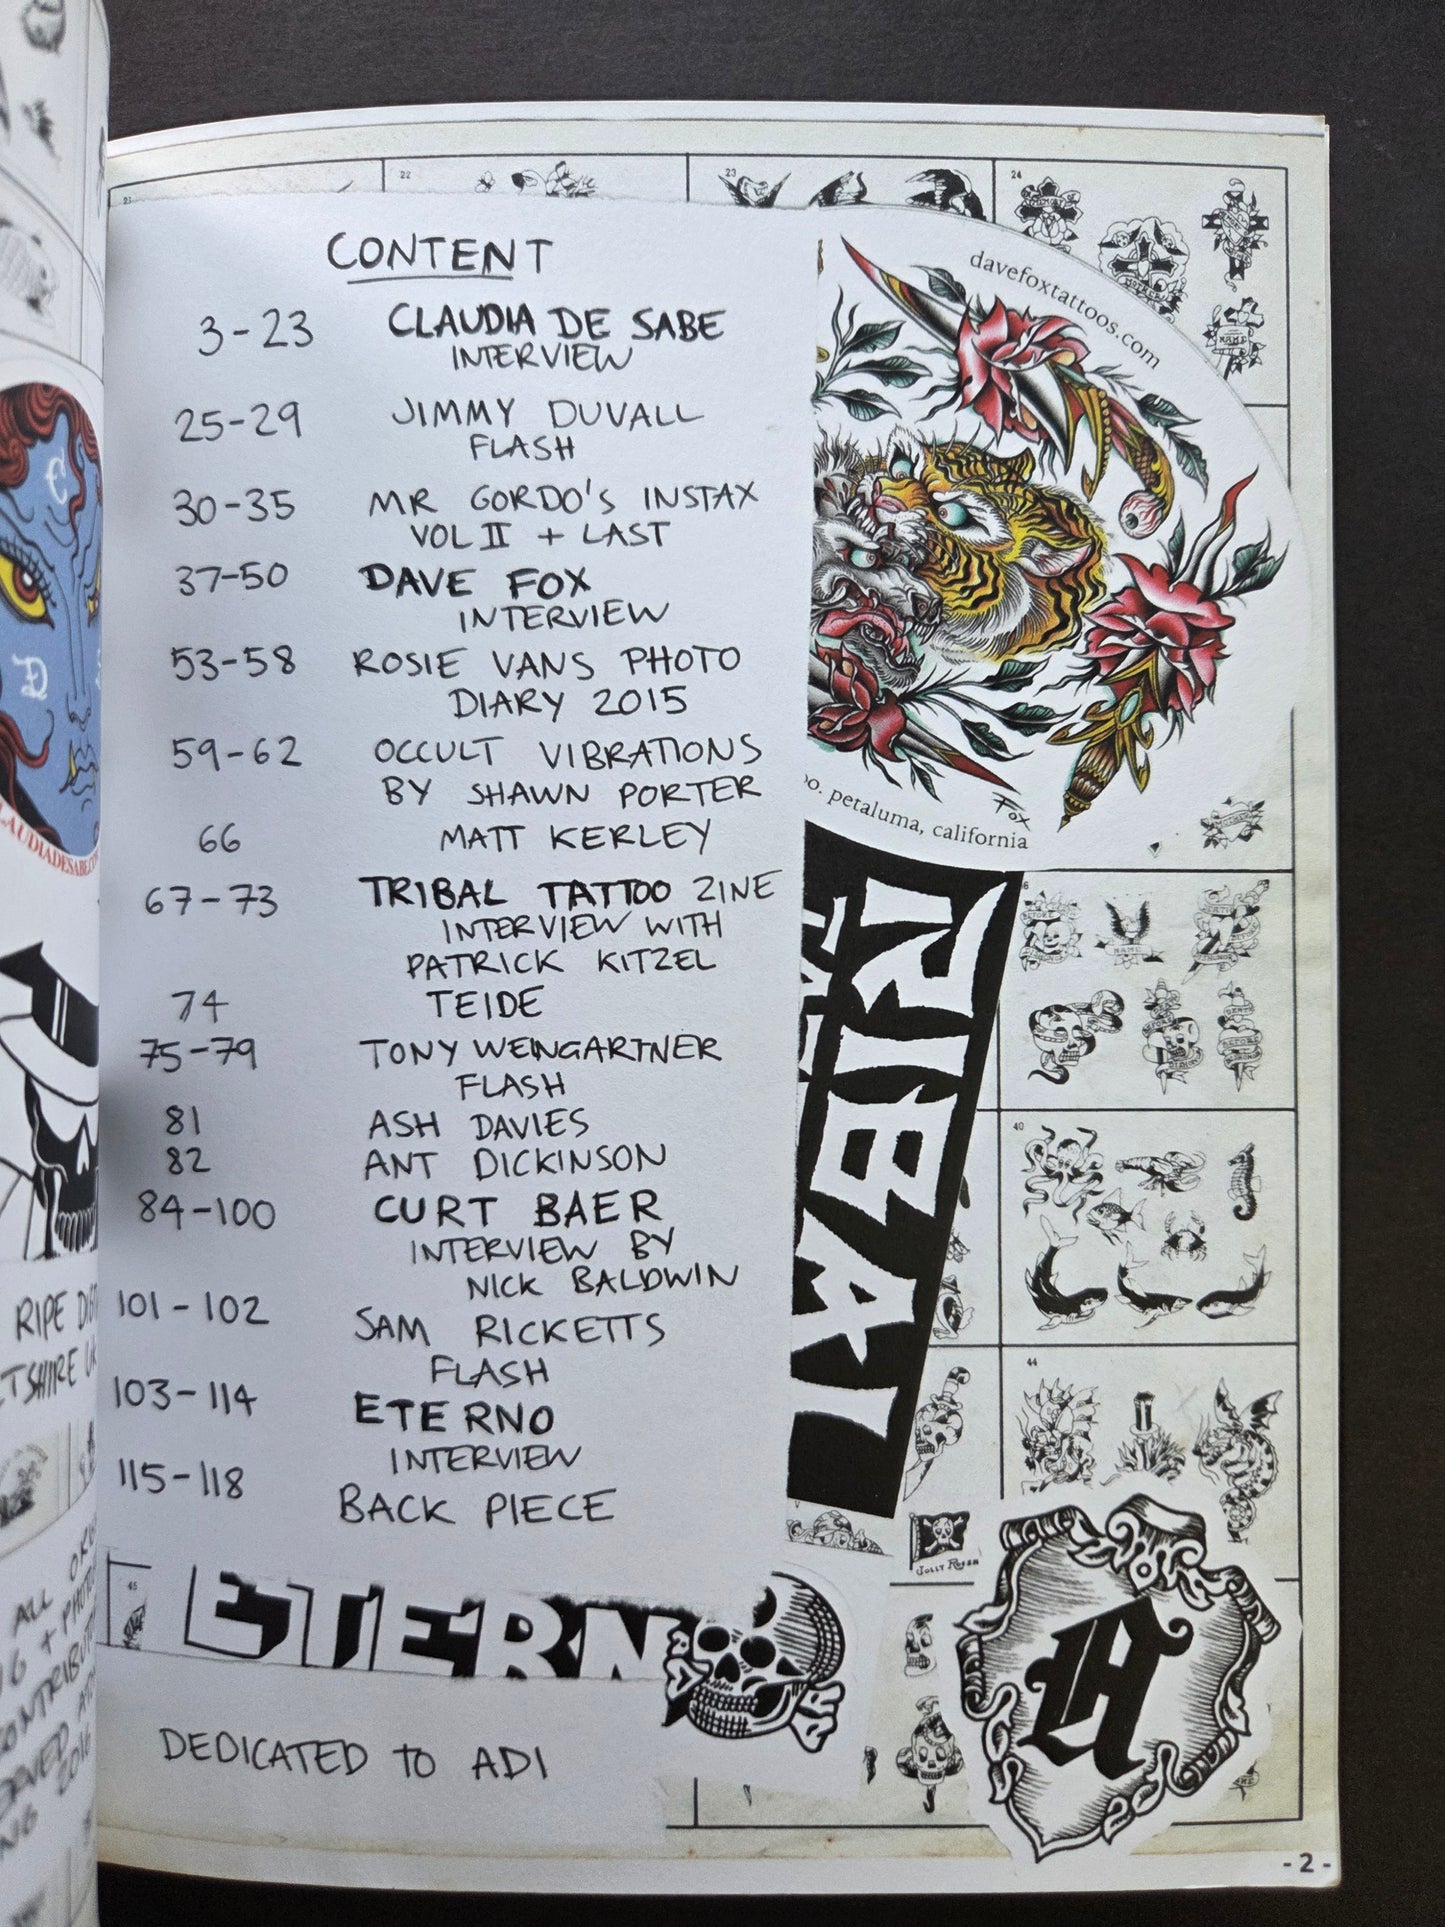 CONTENT
3-23 CLAUDIA DE SABE
INTERVIEW
25-29 JIMMY DUVALL
FLASH
30-35 MR GORDO'S INSTAX
VOL II + LAST
37-50 DAVE FOX
INTERVIEW
53-58 ROSIE VANS PHOTO
DIARY 2015
59-62 OCCULT VIBRATIONS
BY SHAWN PORTER
66 MATT KERLEY
67-73 TRIBAL TATTOO ZINE
INTERVIEW WITH
PATRICK KITZEL
74 TEIDE
75-79 TONY WEINGARTNER
FLASH
81 ASH DAVIES
82 ANT DICKINSON
84-100 CURT BAER
INTERVIEW BY
NICK BALDWIN
101-102 SAM RICKETTS
FLASH
103-114 ETERNO
INTERVIEW
115-118 BACK PIECE
ETERN
DEDICATED TO ADI
davefoxtattoos.com
Fox
petaluma, california
TRIBAL
22
23
24
MOTHER
NAME
NAME
40
44
45
JOLLY ROGER
A
- 2 -
RIPE
UK
ALL
2016